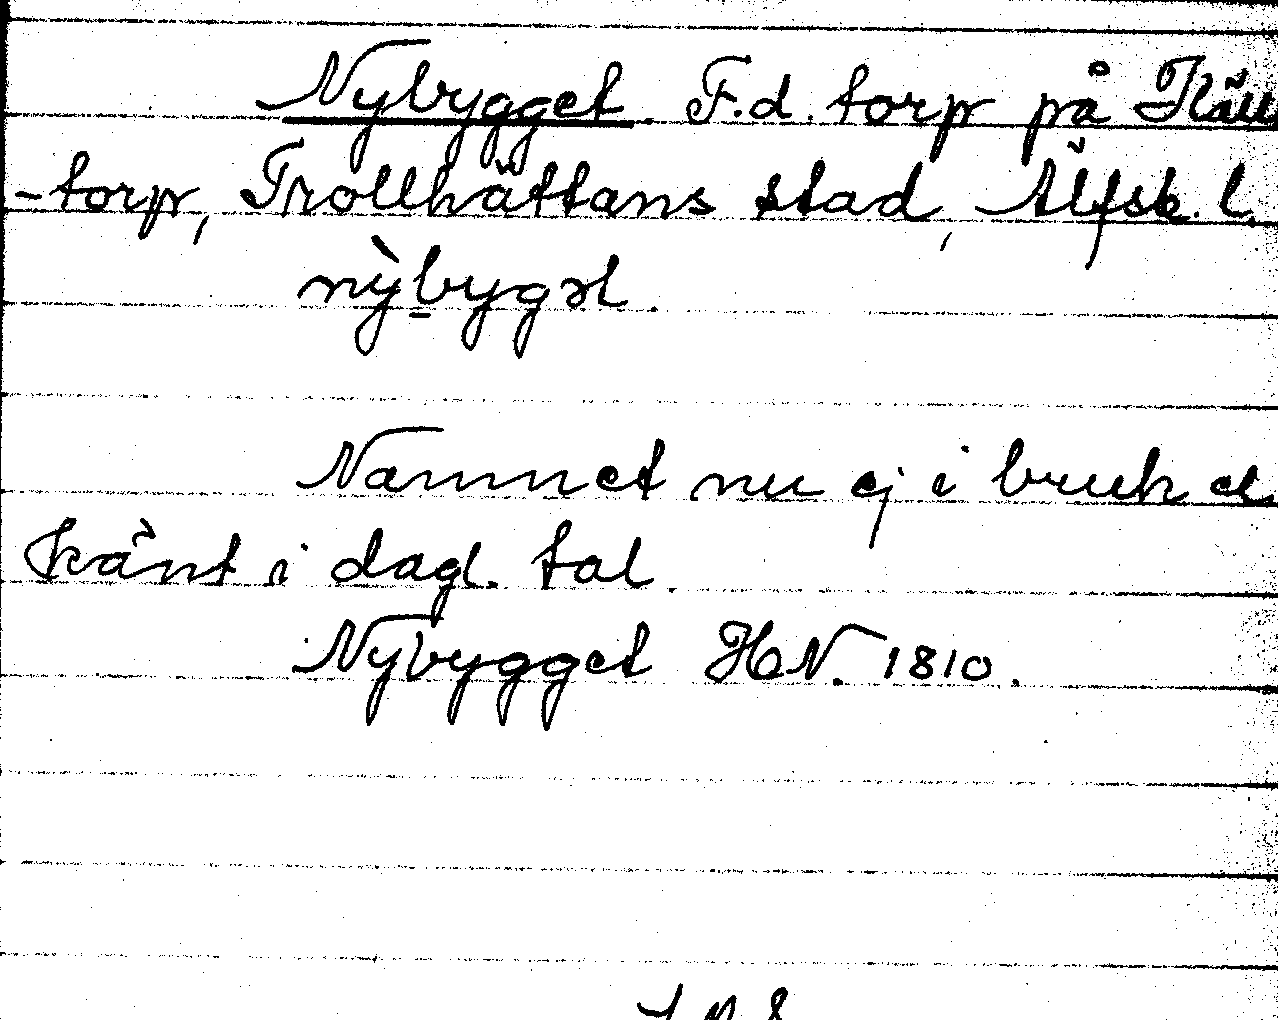 Nybygget. F.d. torp på Käll
-torp, Trollhättans stad, Älfsb. l.
nỳbygət.
Namnet nu ej i bruk el.
känt i dagl. tal.
Nybygget HN. 1810.